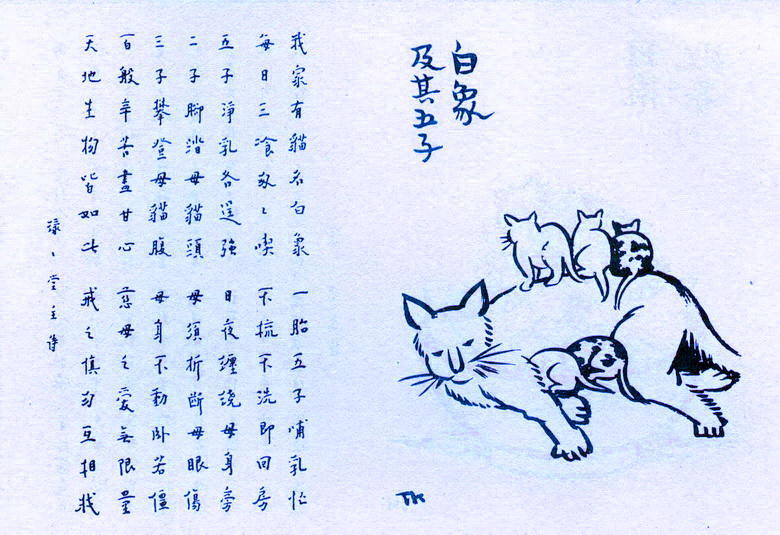 白象
及其五子
我家有貓名白象 一胎五子哺乳忙
每日三飡匆々喫 不梳不洗即回房
五子淨乳各逞強 日夜纏繞母身旁
二子腳踏母貓頭 母須折斷母眼傷
三子攀登母貓腹 母身不動卧若僵
百般辛苦盡甘心 慈母之愛無限量
天地生物皆如此 戒之慎勿互相戕
緣々堂主詩
TK